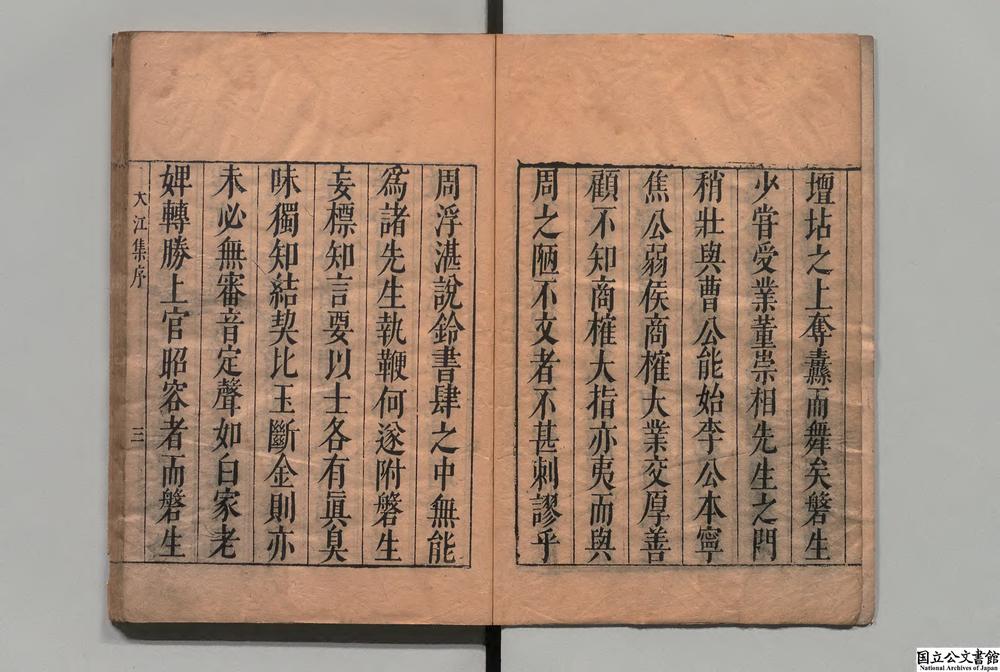 壇坫之上奪纛而舞矣磐生
少甞受業董崇相先生之門
稍壯與曹公能始李公本寧
焦公弱侯商榷大業交厚善
顧不知商榷大指亦夷而與
周之陋不文者不甚刺謬乎
周浮湛說鈴書肆之中無能
為諸先生執鞭何遂附磐生
妄標知言要以士各有真臭
味獨知結契比玉斷金則亦
未必無審音定聲如白家老
婢轉勝上官昭容者而磐生
大江集序
三
国立公文書館
National Archives of Japan